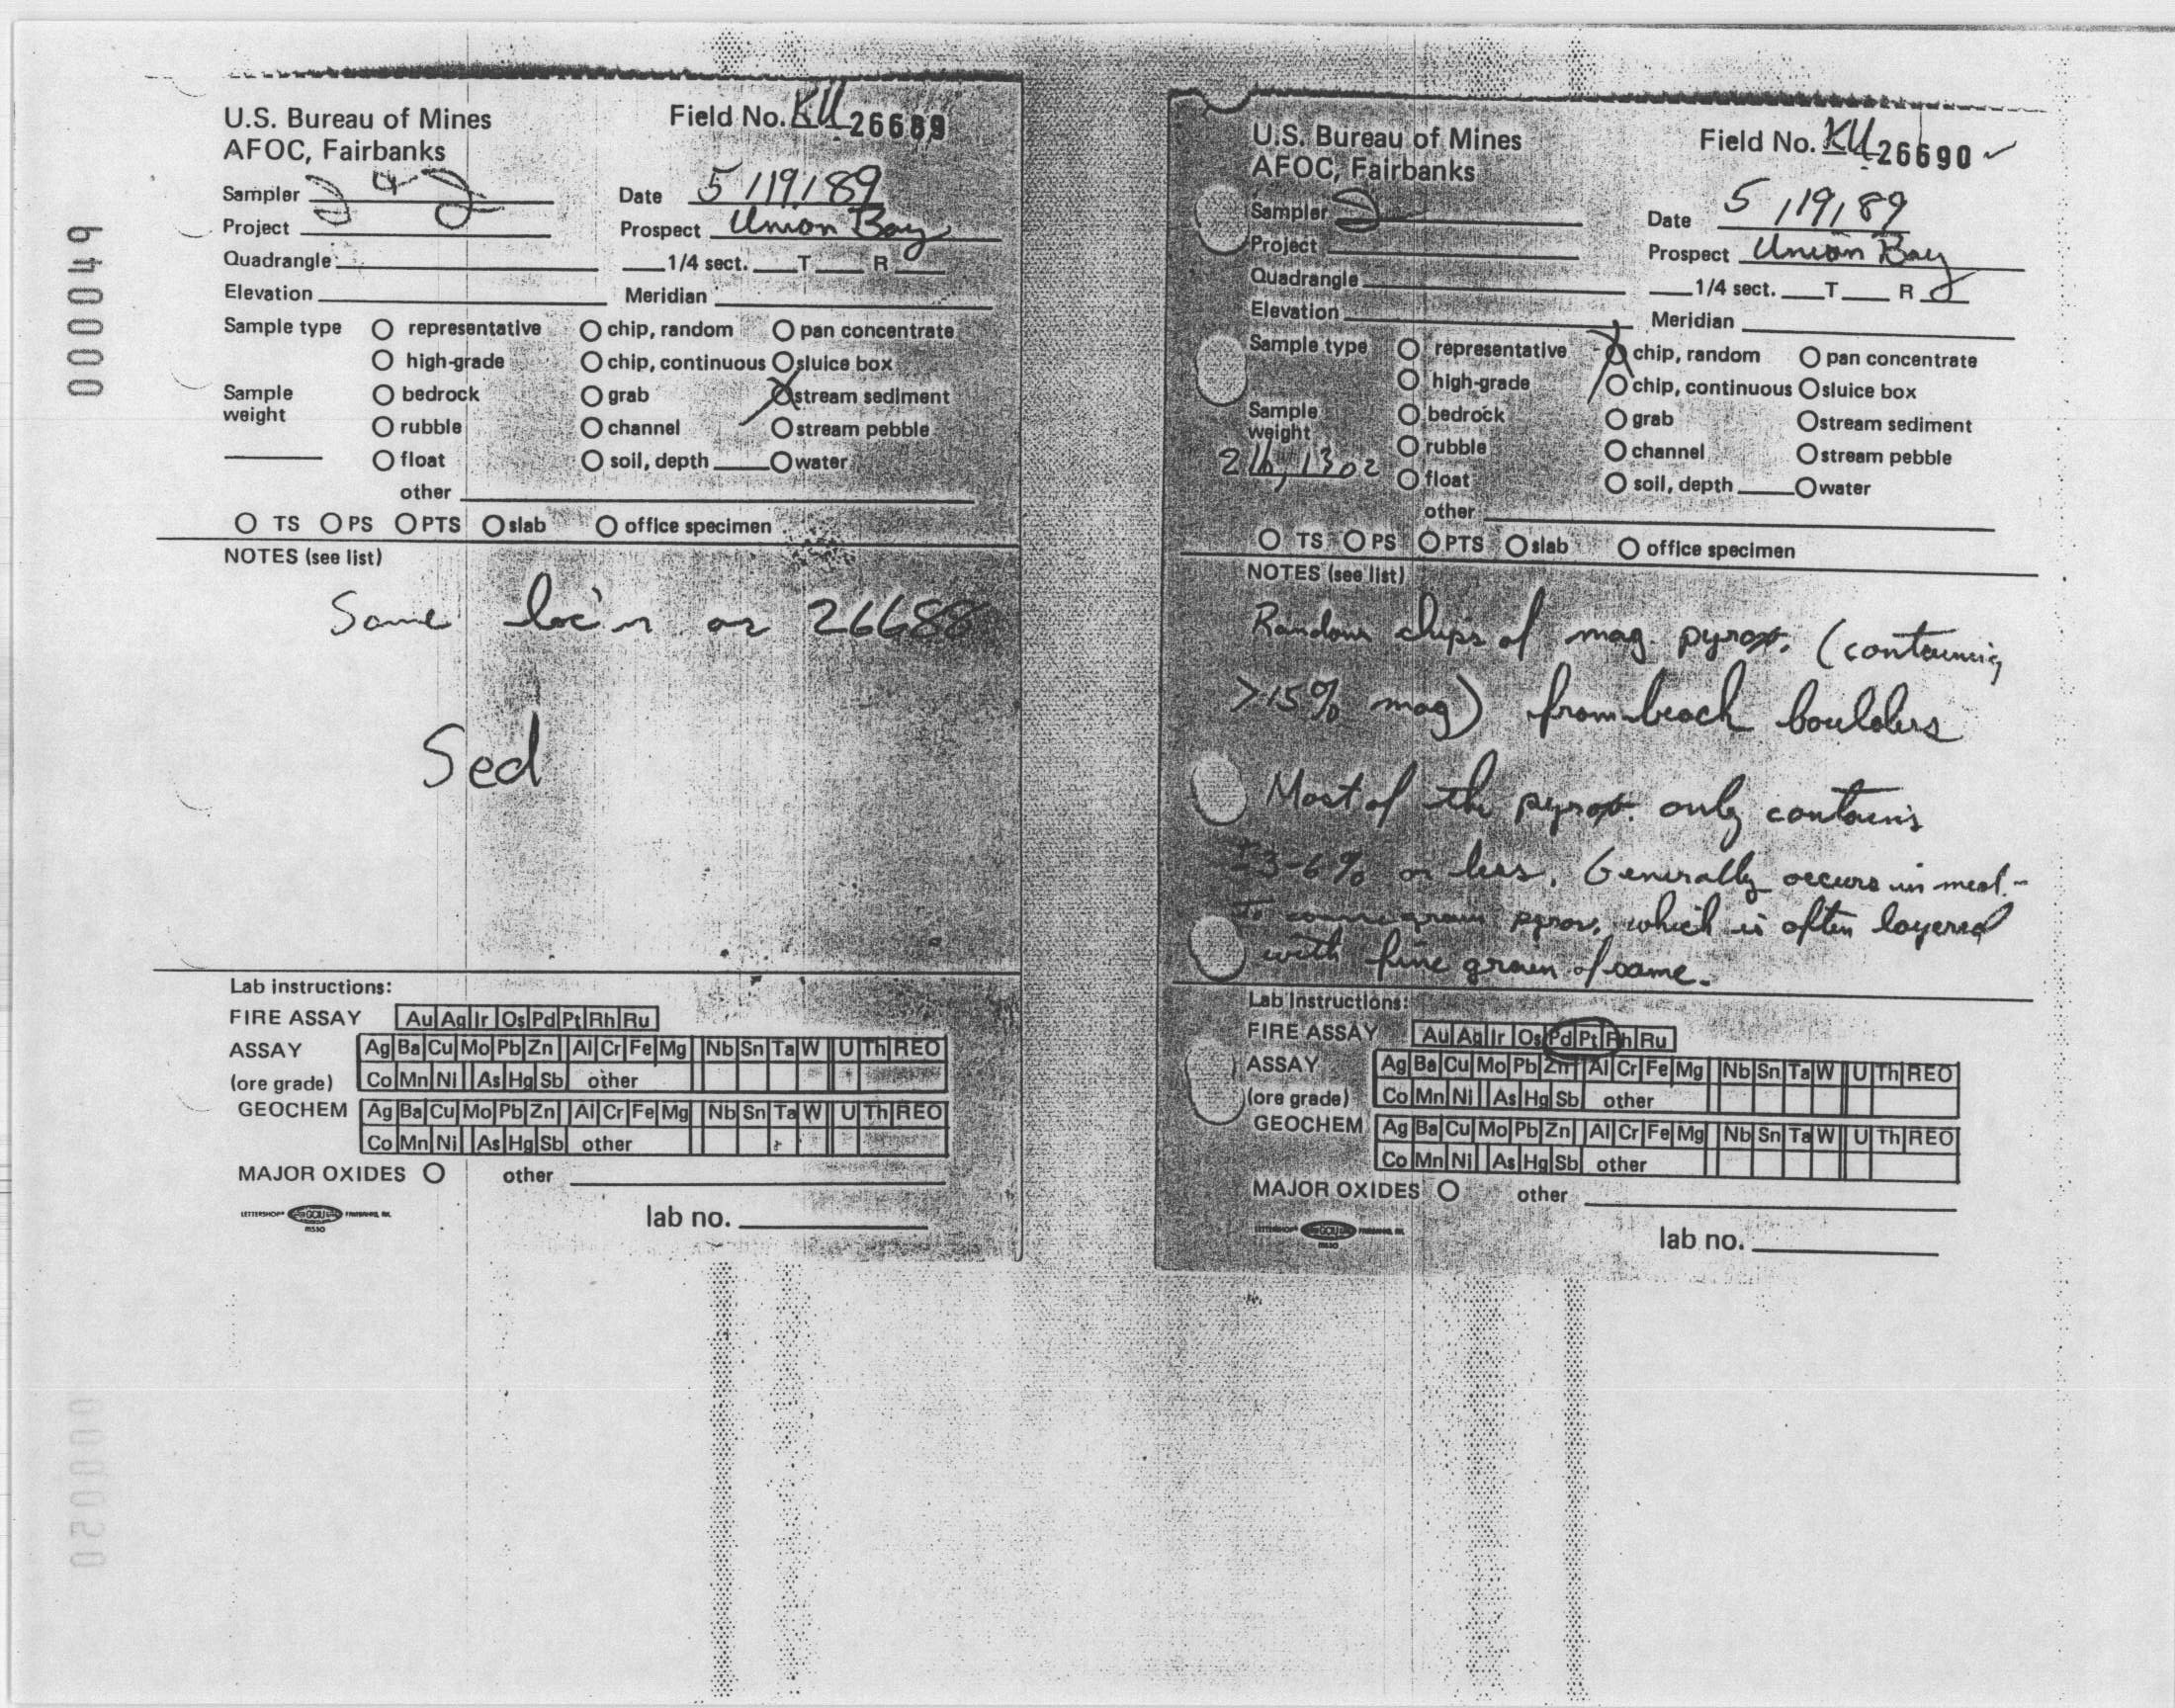 000049
U.S. Bureau of Mines
AFOC, Fairbanks
Field No. KU 26689
Sampler
Date 5/19/89
Project
Prospect Union Bay
Quadrangle
1/4 sect. T R
Elevation
Meridian
Sample type O representative O chip, random O pan concentrate
O high-grade O chip, continuous O sluice box
Sample weight O bedrock O grab O stream sediment
O rubble O channel O stream pebble
O float O soil, depth O water
other
O TS O PS O PTS O slab O office specimen
NOTES (see list)
Same loc'n as 26688
Sed
Lab instructions:
FIRE ASSAY Au Ag Ir Os Pd Pt Rh Ru
ASSAY Ag Ba Cu Mo Pb Zn Al Cr Fe Mg Nb Sn Ta W U Th REO
(ore grade) Co Mn Ni As Hg Sb other
GEOCHEM Ag Ba Cu Mo Pb Zn Al Cr Fe Mg Nb Sn Ta W U Th REO
Co Mn Ni As Hg Sb other
MAJOR OXIDES O other
lab no.
U.S. Bureau of Mines
AFOC, Fairbanks
Field No. KU 26690 ✓
Sampler
Date 5/19/89
Project
Prospect Union Bay
Quadrangle
1/4 sect. T R
Elevation
Meridian
Sample type O representative O chip, random O pan concentrate
O high-grade O chip, continuous O sluice box
Sample weight O bedrock O grab O stream sediment
2 lb, 13 oz O rubble O channel O stream pebble
O float O soil, depth O water
other
O TS O PS O PTS O slab O office specimen
NOTES (see list)
Random chips of mag. pyrox. (containing
>15% mag) from beach boulders
Most of the pyrox. only contains
±3-6% or less. Generally occurs in med.-
to coarse grain pyrox, which is often layered
with fine grain of same.
Lab Instructions:
FIRE ASSAY Au Ag Ir Os Pd Pt Rh Ru
ASSAY Ag Ba Cu Mo Pb Zn Al Cr Fe Mg Nb Sn Ta W U Th REO
(ore grade) Co Mn Ni As Hg Sb other
GEOCHEM Ag Ba Cu Mo Pb Zn Al Cr Fe Mg Nb Sn Ta W U Th REO
Co Mn Ni As Hg Sb other
MAJOR OXIDES O other
lab no.
000050